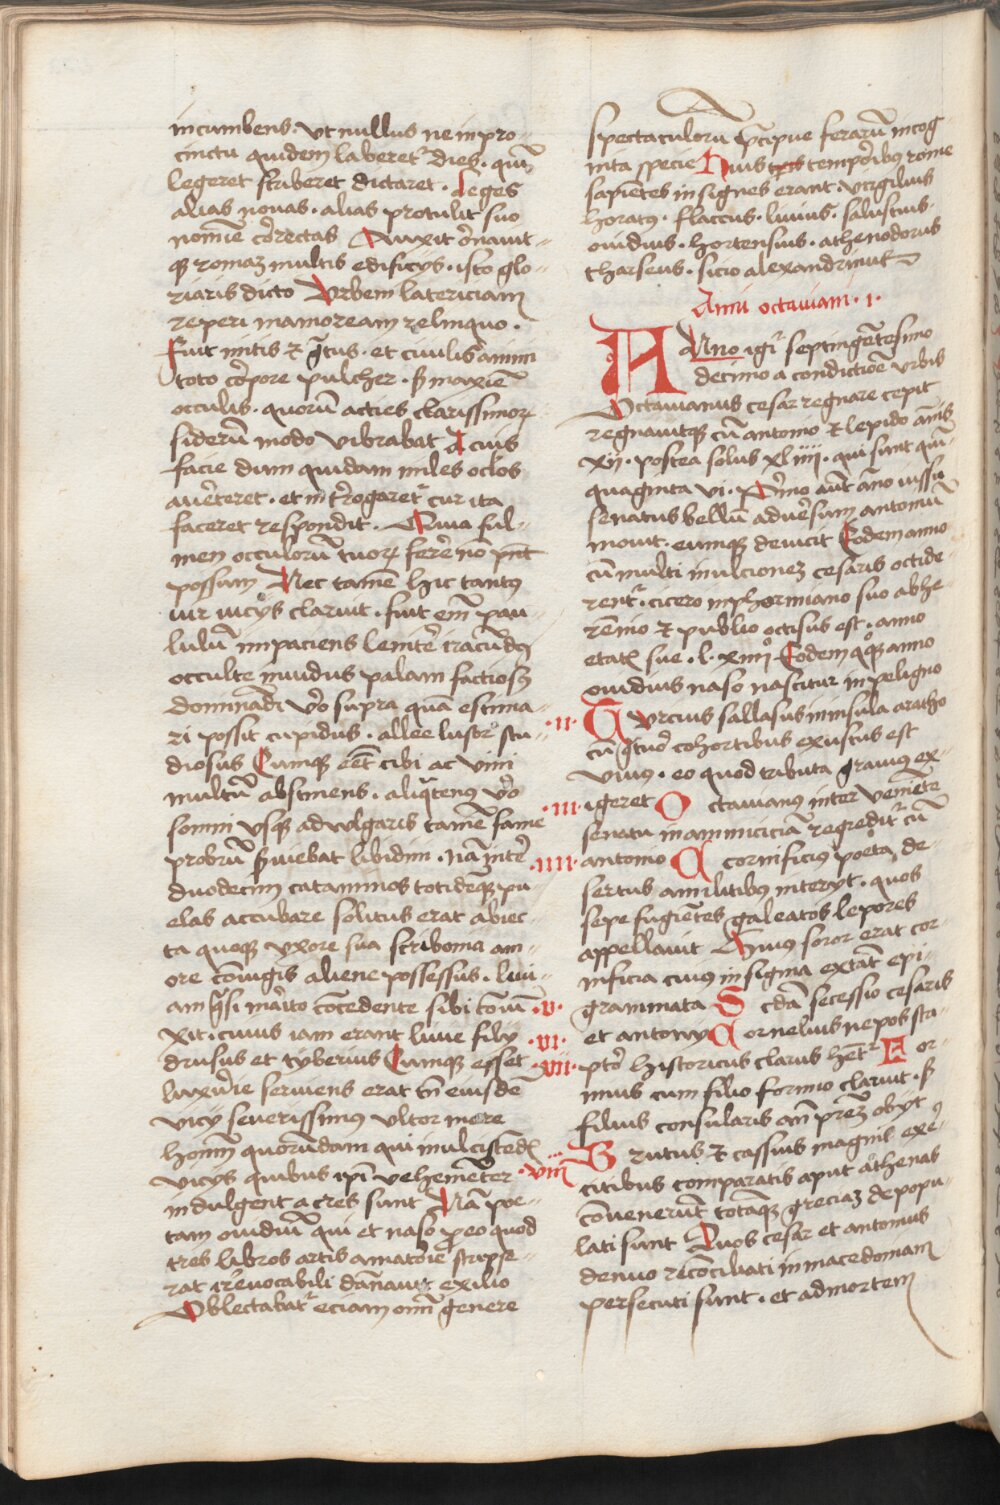 incumbens. vt nullus ne in pro-
cinctu quidem laberet᷑ dies. quī
legeret scriberet dictaret. Leges
alias nouas. alias protulit suo
nomīe correctas Auxit ornauit-
qꝫ romaꝫ multis edificijs. isto glo-
riaris dicto Vrbem latericiam
reperi mamoream relinquo.
Fuit mitis et gͣtus. et ciuilis animi
toto corpore pulcher. sꝫ maxīe
occulis. quorū acties clarissimoꝝ
siderū modo vibrabat A cuius
facie dum quidam miles oclōs
auerteret. et interrogaret᷑ cur ita
faceret respondit. Quia ful-
men occulorū tuoꝝ ferre nō
possum Nec tamē hic tantus
vir vicijs claruit. fuit em̄ pau-
lulū impaciens leniter iracūdus
occulte inuidus palam factiosꝫ
dominādi vero supra quā estima-
ri possit cupidus. allee lusor stu-
diosus Cumqꝫ eēt cibi ac vini
multū abstinens. aliqͣtenus vero
somni vsqꝫ ad vulgaris tamē fame
probrū suiebat libidini. nā inter
duodecim cataminos totidēqꝫ pu-
elas accubare solitus erat abiec-
ta quoqꝫ vxore sua scribonia am-
ore cōiugis aliene possessus. liui-
am qͣsi marito cōcedente sibi cōiū-
xit. cuius iam erant liuie filij
drusus et tyberius Cumqꝫ esset
luxurie seruiens erat tn̄ eiusdē
vicij seuerissimus vltor more
hominū quorūdam qui in vlciscēdis
vicijs quibus ipī vehemēter
indulgent acres sunt Nā poe-
tam ouidiū qui et naso ꝓ eo quod
tres libros artis amatorie scripse-
rat irreuocabili dānauit exilio
Oblectabat᷑ eciam omī genere
spectaculorū precipue ferarū incog-
nita specie Huius temporibus rome
sapiētes insignes erant. virgilius
horatius. flaccus. liuius. salustius.
ouidius. hortensius. athenodorus
tharsens. sicio alexandrinus
Anni octauiani. i.
ANno igit᷑ septingētesimo
decimo a condictiōe vrbis
Octauianus cesar regnare cepit
regnauitqꝫ cū antonio et lepido annis
xij. postea solus xliiii. qui sunt qui-
quaginta vi. Primo aūt ano iussu
senatus bellū aduersum antoniū
mouit. eumqꝫ deuicit Eodem anno
cū multi in vlcionem cesaris octide-
rent᷑. cicero in phormiano suo ab he-
rēnio et publio occisus est. anno
etatis sue. l. xiiij Eodem qͦqꝫ anno
ouidius naso nascitur in peligno
.ii. Curcius sallasus in insula aratho
cū qͣtuor cohortibus exustus est
viuus. eo quod tributa grauius ex-
.iii. igeret Octauianus inter veniēte
senatu in ammiciciā regredit᷑ cū
.iiii. antonio Cornificius poeta, de-
sertus a militibus interijt. quos
sepe fugiētes galeatos lepores
appellauit Huius soror erat cor-
nificia cuius insignia extāt epi-
.v. grammata Scda secessio cesaris
.vi. et antonij Cornelius nepos scri-
.vii. ptor historicus clarus het᷑ For-
mius cum filio formio claruit. sꝫ
filius consularis an̄ prem̄ obijt
.viii. Brutus et cassius magnis exer-
citibus comparatis aput athenas
cōuenerūt totāqꝫ greciaꝫ depopu-
lati sunt Quos cesar et antonius
denuo reconciliati in macedoniam
persecuti sunt. et ad mortem